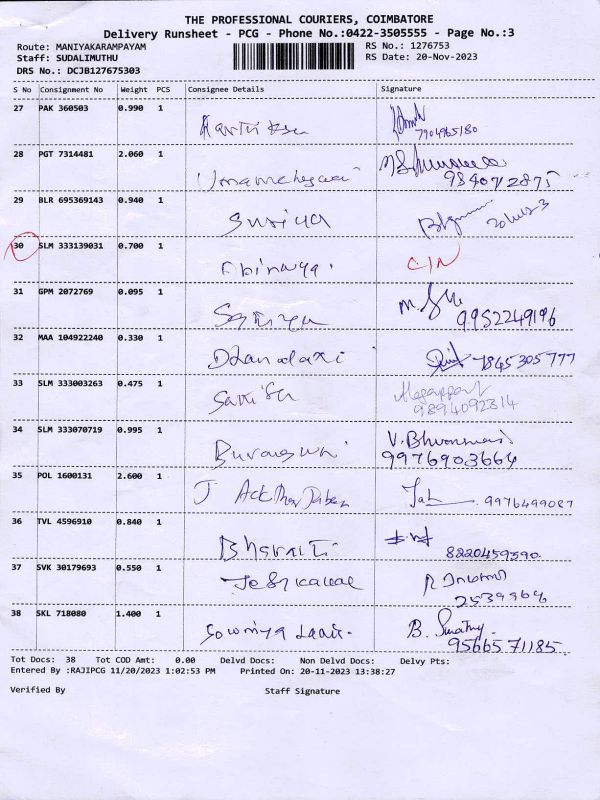 THE PROFESSIONAL COURIERS, COIMBATORE
Delivery Runsheet - PCG - Phone No.:0422-3505555 - Page No.:3
Route: MANIYAKARAMPAYAM RS No.: 1276753
Staff: SUDALIMUTHU RS Date: 20-Nov-2023
DRS No.: DCJB127675303
S No Consignment No Weight PCS Consignee Details Signature
27 PAK 360503 0.990 1
7904965180
28 PGT 7314481 2.060 1
9840712875
29 BLR 695369143 0.940 1
Suriya
30 SLM 333139031 0.700 1
Abinaya.
31 GPM 2072769 0.095 1
9952249196
32 MAA 104922240 0.330 1
Dhanalaxi 7845305777
33 SLM 333003263 0.475 1
9894092314
34 SLM 333070719 0.995 1
9976903664
35 POL 1600131 2.600 1
J 9976499087
36 TVL 4596910 0.840 1
8220459590
37 SVK 30179693 0.550 1
2539964
38 SKL 718080 1.400 1
Sowmiya B.
9566571185
Tot Docs: 38 Tot COD Amt: 0.00 Delvd Docs: Non Delvd Docs: Delvy Pts:
Entered By :RAJIPCG 11/20/2023 1:02:53 PM Printed On: 20-11-2023 13:38:27
Verified By Staff Signature